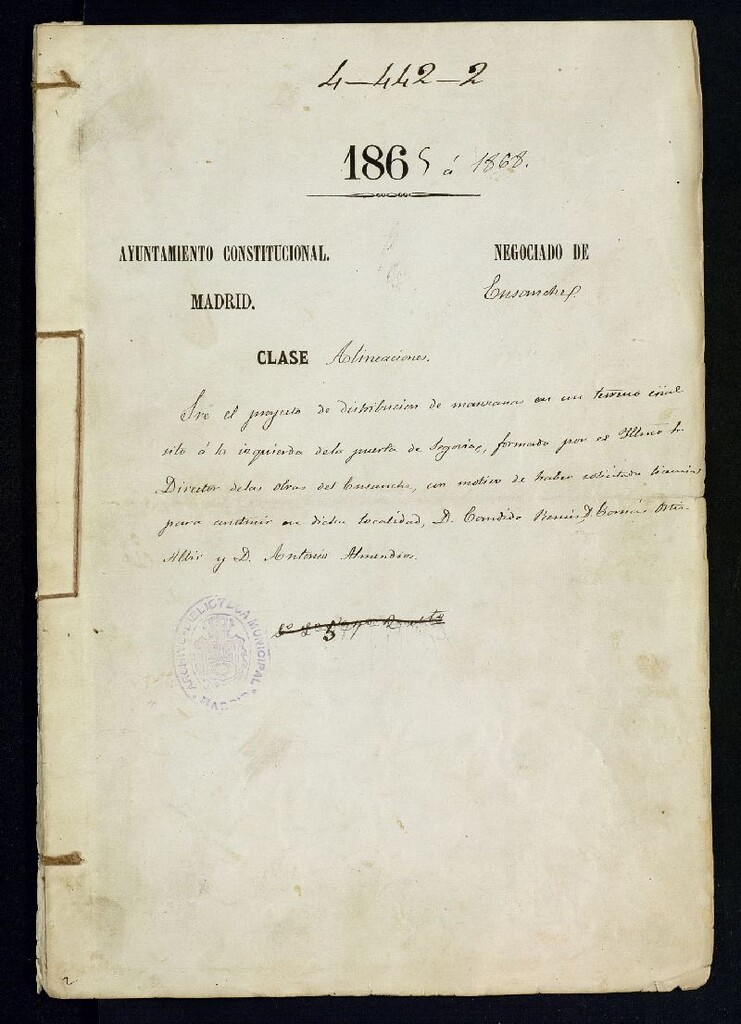 4-442-2
1865 á 1868.
AYUNTAMIENTO CONSTITUCIONAL.
MADRID.
NEGOCIADO DE
Ensanche.
CLASE Alineaciones.
Sre el proyecto de distribucion de manzanas en un terreno
sito á la izquierda dela puerta de Segovia, formado por el Yltmo Sr
Director delas obras del Ensanche, con motivo de haber solicitado licencias
para construir en dicha localidad, D. Candido D. Tomás
y D. Antonio Almendros.
ARCHIVO-BIBLIOTECA MUNICIPAL
MADRID
5
2